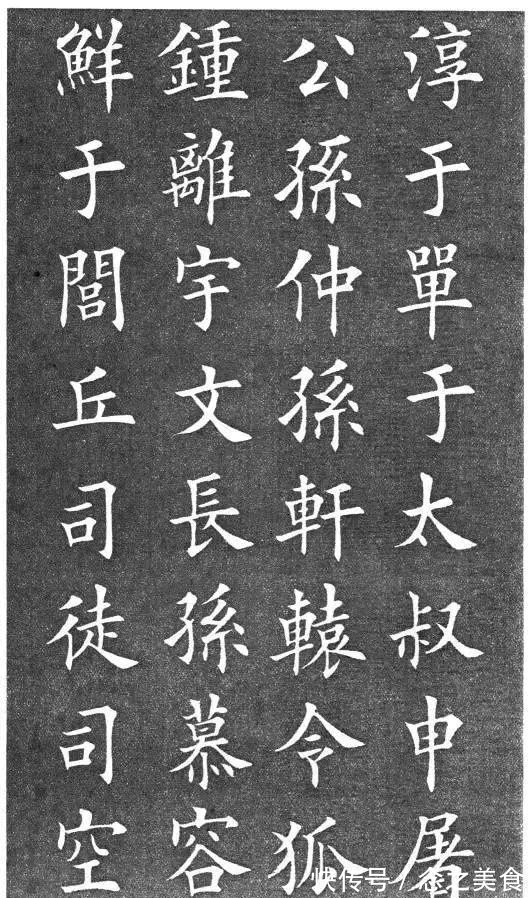 淳于單于太叔申屠
公孫仲孫軒轅令狐
鍾離宇文長孫慕容
鮮于閭丘司徒司空
快传号/念之美食